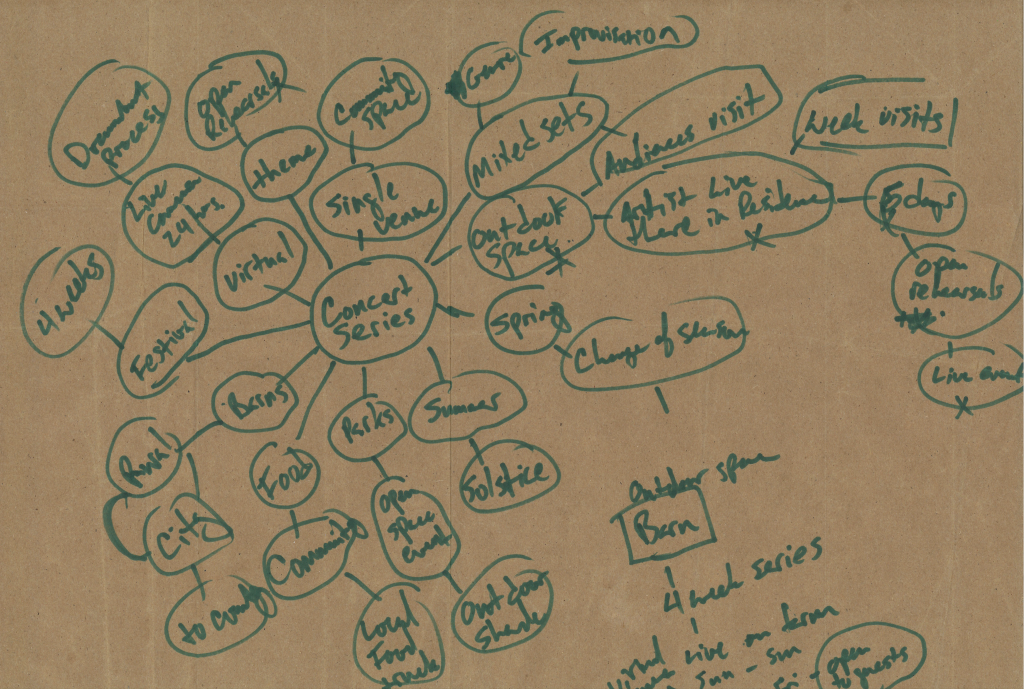 Improvisation
Genre
Community
space
open
Rehearsals
Document
process
Mixed sets
Audiences visit
week visits
theme
Single
venue
Live
Camera
24 hrs
Outdoor
space
Artist Live
there in Residence
5 days
virtual
open
rehearsals
4 weeks
Festival
Concert
Series
Spring
Change of season
Live event
Barns
Parks
Summer
Rural
Food
Solstice
City
open
space
event
Outdoor space
Barn
Community
to County
Outdoor
4 week series
Local
Food
Live on farm
Sun - Sun
open
to guests